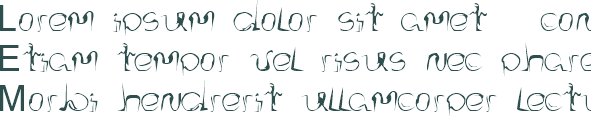 Lorem ipsum dolor sit amet con
Etiam tempor vel risus nec phare
Morbi hendrerit ullamcorper lectu